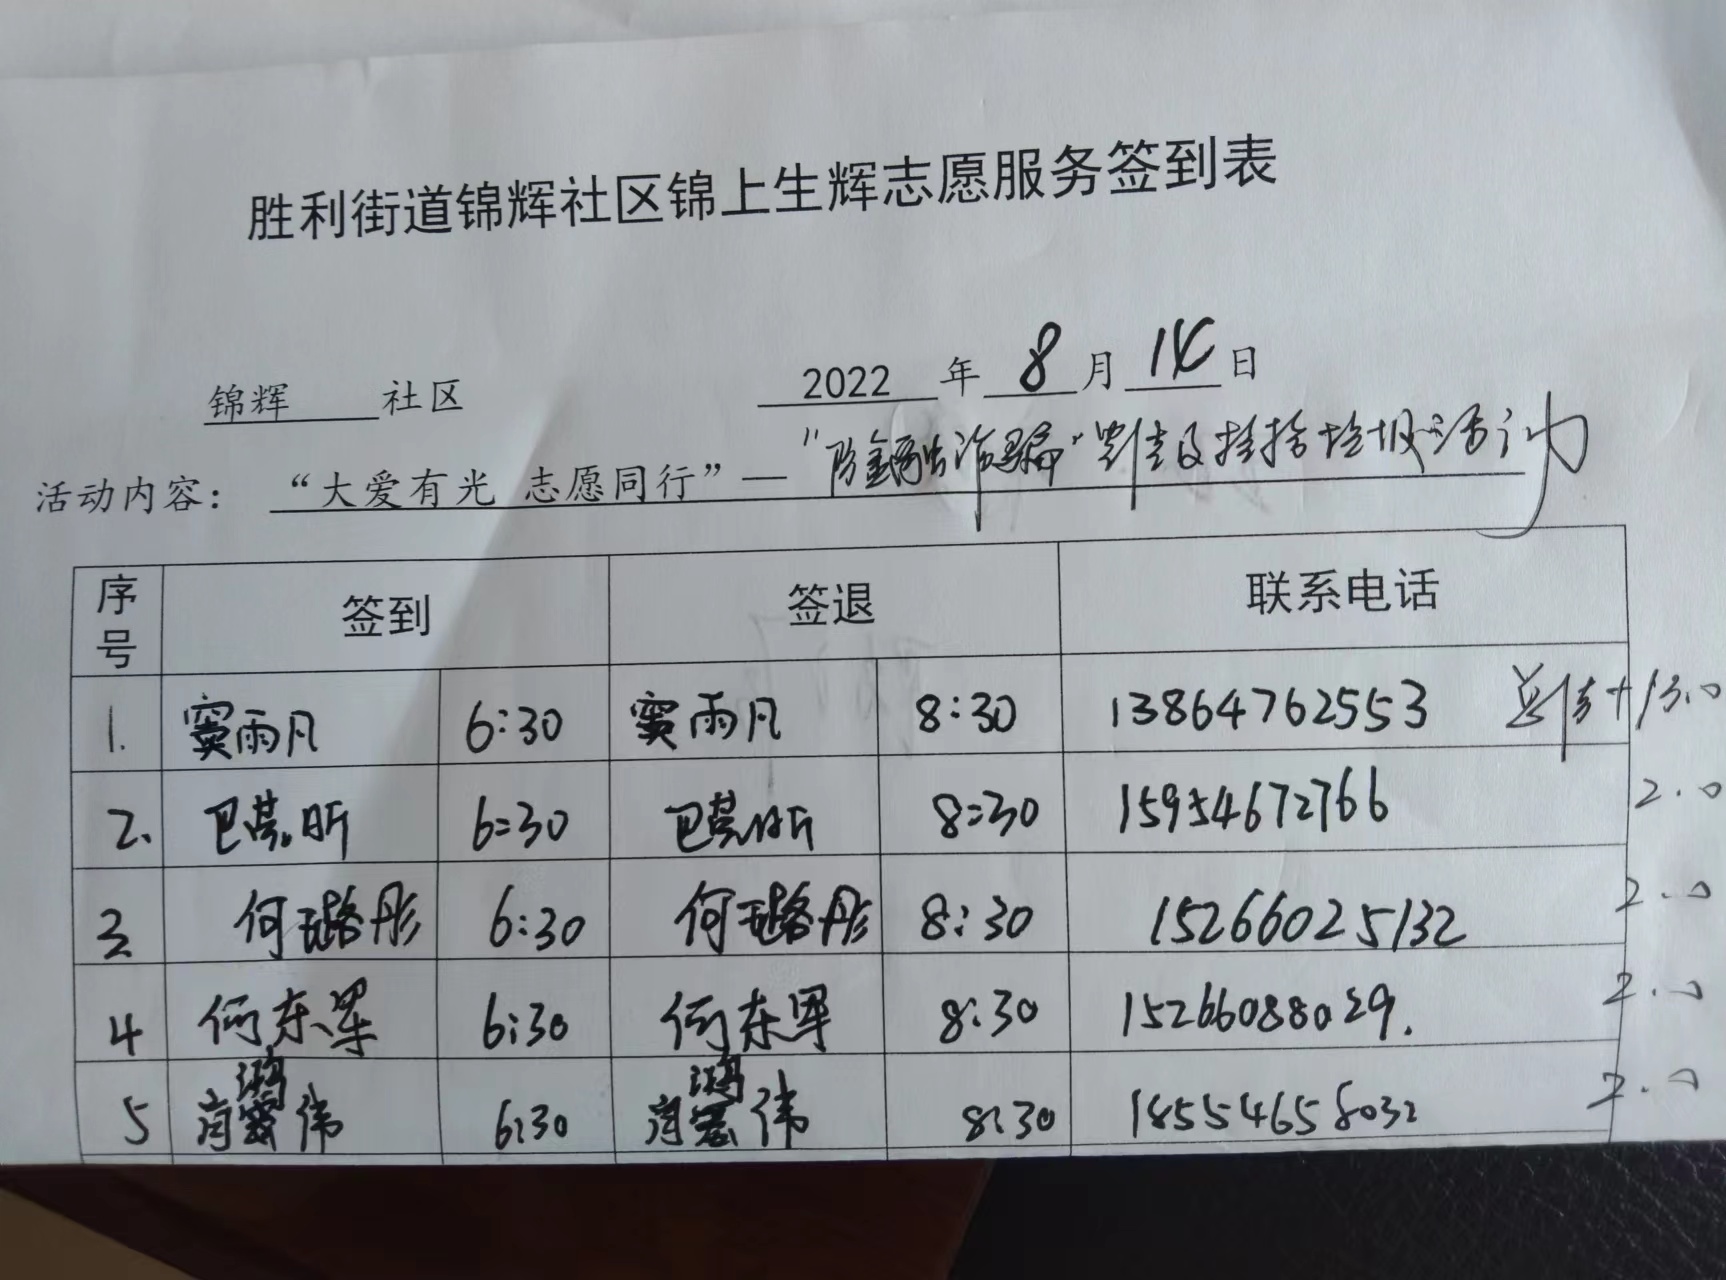 胜利街道锦辉社区锦上生辉志愿服务签到表
锦辉 社区 2022 年 8 月 14 日
活动内容: “大爱有光 志愿同行”— “防金融诈骗”宣传及捡拾垃圾活动
序号 签到 签退 联系电话
1. 窦雨凡 6:30 窦雨凡 8:30 13864762553 +13.0
2. 巴慕昕 6:30 巴慕昕 8:30 15954672766 2.0
3 何璐彤 6:30 何璐彤 8:30 15266025132 2.0
4 何东军 6:30 何东军 8:30 15266088029. 2.0
5 鸿伟 6:30 鸿伟 8:30 18554658032 2.0